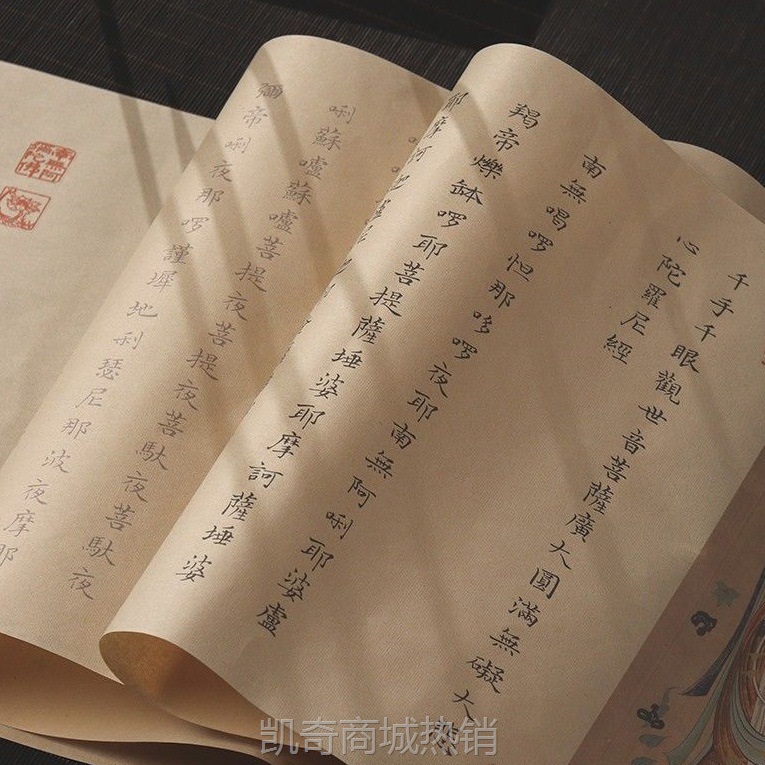 千手千眼觀世音菩薩廣大圓滿無礙大悲
心陀羅尼經
南無喝啰怛那哆啰夜耶南無阿唎耶婆盧
羯帝爍缽啰耶菩提薩埵婆耶摩訶薩埵婆
耶摩訶
唎蘇嚧蘇嚧菩提夜菩提夜菩馱夜菩馱夜
彌帝唎夜那啰謹墀地利瑟尼那波夜摩那
南無阿彌陀佛
凯奇商城热销